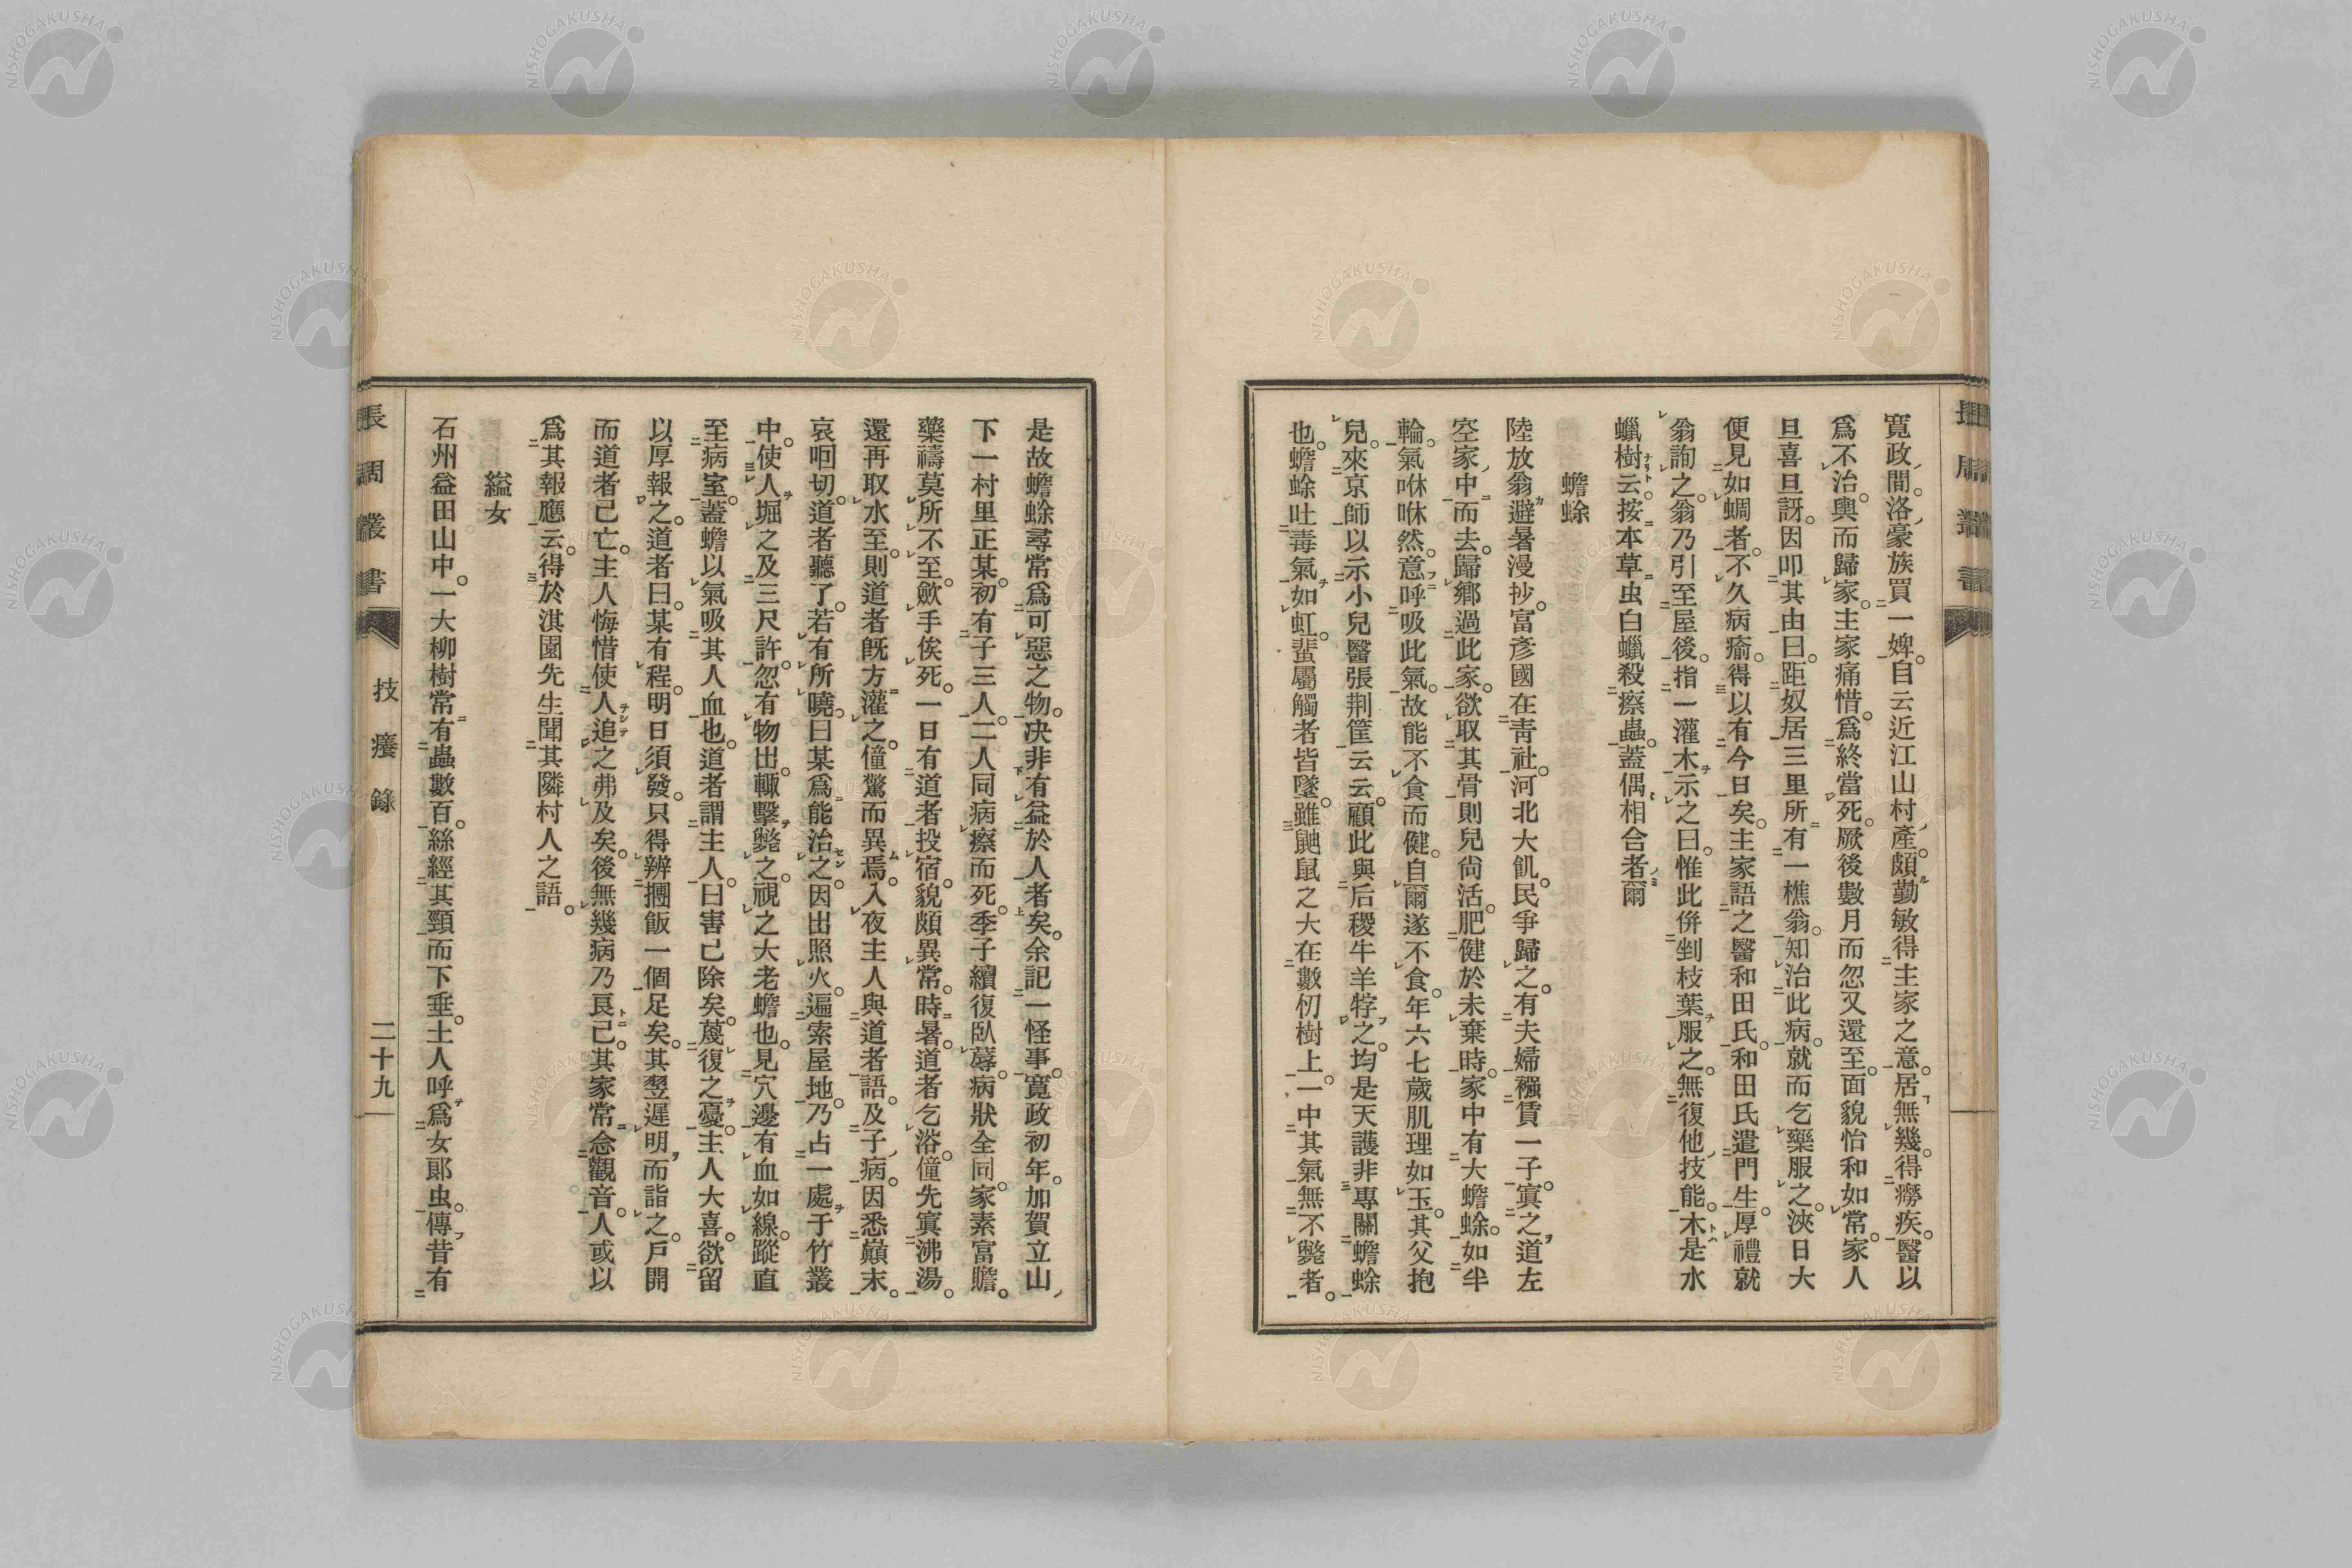 寛政間。洛豪族買一婢。自云近江山村産。頗勤敏得主家之意。居無幾。得癆疾。醫以
爲不治。輿而歸家。主家痛惜。爲終當死。厥後數月而忽又還至。面貌怡和如常。家人
且喜且訝。因叩其由。曰。距奴居三里所。有一樵翁。知治此病。就而乞藥服之。浹日大
便見如蜩者。不久病瘉。得以有今日矣。主家語之醫和田氏。和田氏遣門生。厚禮就
翁詢之。翁乃引至屋後。指一灌木示之曰。惟此併剉枝葉服之。無復他技能。木是水
蠟樹云。按本草虫白蠟殺瘵蟲。蓋偶相合者爾
蟾蜍
陸放翁避暑漫抄。富彦國在青社。河北大飢。民爭歸之。有夫婦襁賃一子。寘之道左
空家中而去。歸鄉過此家。欲取其骨則兒尚活。肥健於未棄時。家中有大蟾蜍。如半
輪。氣咻咻然。意呼吸此氣。故能不食而健。自爾遂不食。年六七歲肌理如玉。其父抱
兒。來京師以示小兒醫張荆筐云云。顧此與后稷牛羊牸之。均是天護非專關蟾蜍
也。蟾蜍吐毒氣如虹。蜚屬觸者皆墜。雖鼬鼠之大在數仞樹上。一中其氣無不斃者。
是故蟾蜍尋常爲可惡之物。决非有益於人者矣。余記一怪事。寛政初年。加賀立山
下一村里正某。初有子三人。二人同病瘵而死。季子續復臥蓐。病狀全同。家素富贍。
藥禱莫所不至。歛手俟死。一日有道者投宿。貌頗異常。時暑。道者乞浴。僮先寘沸湯。
還再取水至。則道者既方灌之。僮驚而異焉。入夜主人與道者語。及子病。因悉巔末。
哀㘞切。道者聽了。若有所曉。曰某爲能治之。因出照火。遍索屋地。乃占一處于竹叢
中。使人堀之及三尺許。忽有物出。輙擊斃之。視之大老蟾也。見穴邊有血如線。蹤直
至病室。蓋蟾以氣吸其人血也。道者謂主人。曰害已除矣。蔑復之憂。主人大喜。欲留
以厚報之。道者曰。某有程。明日須發。只得辨摶飯一個足矣。其翌遲明。而詣之。戸開
而道者已亡。主人悔惜使人追之弗及矣。後無幾病乃良已。其家常念觀音。人或以
爲其報應云。得於淇園先生聞其隣村人之語。
縊女
石州益田山中。一大柳樹常有蟲數百。絲經其頸而下垂。土人呼爲女郞虫。傳昔有
張周叢書
技癢錄
二十九